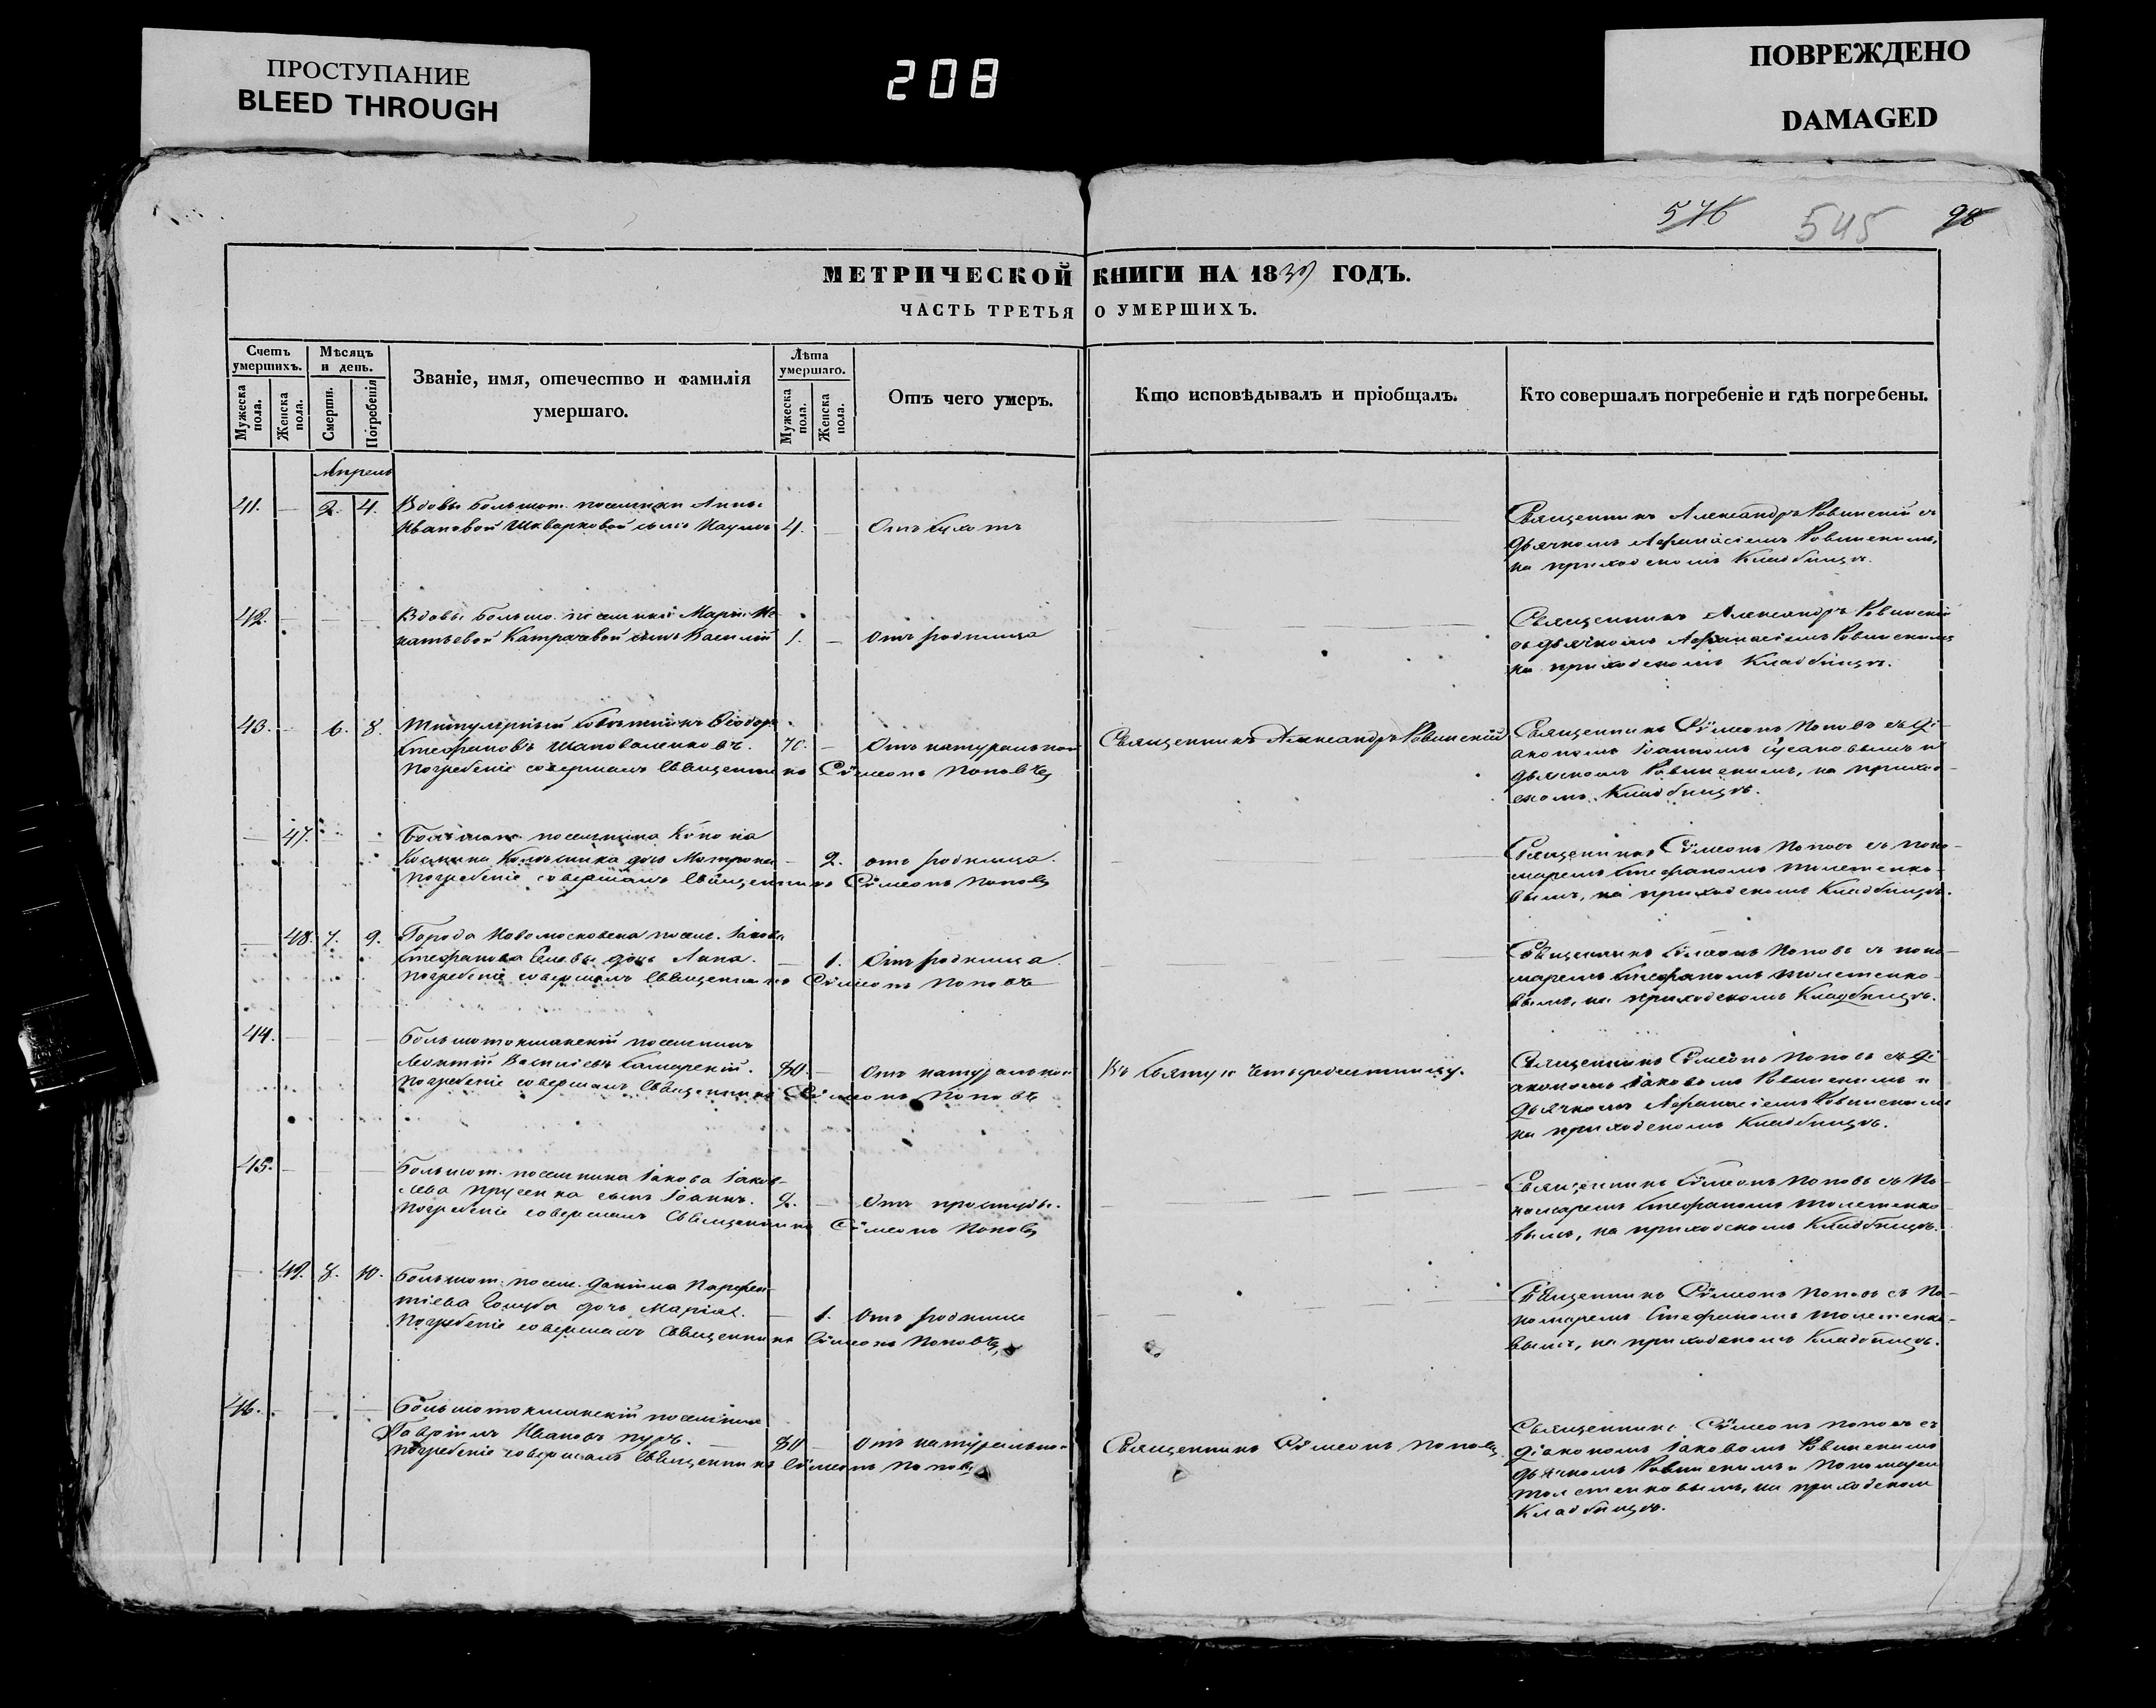 ПРОСТУПАНИЕ
BLEED THROUGH
208
ПОВРЕЖДЕНО
DAMAGED
546 545 98
МЕТРИЧЕСКОЙ КНИГИ НА 1839 ГОДЪ.
ЧАСТЬ ТРЕТЬЯ О УМЕРШИХЪ.
Счетъ умершихъ.
Мужеска пола.
Женска пола.
Мѣсяцъ и день.
Смерти.
Погребенія
Званіе, имя, отечество и фамилія умершаго.
Лѣта умершаго.
Мужеска пола.
Женска пола.
Отъ чего умеръ.
Кто исповѣдывалъ и пріобщалъ.
Кто совершалъ погребеніе и гдѣ погребены.
Апрель
41. — 2. 4. Вдовы большот. поселянки Анны
Ивановой Шкварковой сынъ Наумъ 4. —
Священникъ Александръ Ровинскій съ
дьячкомъ Афанасіемъ Ровинскимъ,
на приходскомъ Кладбищѣ.
42. — — — Вдовы большо. поселянки Маріи Иг
натьевой Катрачевой сынъ Василій 1. — отъ родимца
Священникъ Александръ Ровинскій
съ дьячкомъ Афанасіемъ Ровинскимъ
на приходскомъ Кладбищѣ.
43. — 6. 8. Титулярный Совѣтникъ Ѳеодоръ
Стефановъ Шаповаленковъ. 70. — Отъ натуральной
Погребеніе совершалъ Священникъ Сѵмеонъ Поповъ
Священникъ Александръ Ровинскій
Священникъ Сѵмеонъ Поповъ съ Ді-
акономъ Іоанномъ и
дьячкомъ Ровинскимъ, на приход-
скомъ Кладбищѣ.
— 47. — — поселянина Конона
Косьмина дочь Матрона — 2. отъ родимца.
Погребеніе совершалъ Священникъ Сѵмеонъ Поповъ
Священникъ Сѵмеонъ Поповъ съ поно-
маремъ Стефаномъ Толстенко-
вымъ, на приходскомъ Кладбищѣ.
— 48. 7. 9. Города Новомосковска посел. Іакова
Стефанова дочь Анна. — 1. Отъ родимца.
Погребеніе совершалъ Священникъ Сѵмеонъ Поповъ
Священникъ Сѵмеонъ Поповъ съ поно-
маремъ Стефаномъ Толстенко-
вымъ, на приходскомъ Кладбищѣ.
44. — — — Большотокмакскій поселянинъ
Леонтій Василіевъ 80. — Отъ натуральной
Погребеніе совершалъ Священникъ Сѵмеонъ Поповъ
Въ Святую Четыредесятницу.
Священникъ Сѵмеонъ Поповъ съ Ді-
акономъ Іаковомъ Ровинскимъ и
дьячкомъ Афанасіемъ Ровинскимъ
на приходскомъ Кладбищѣ.
45. — — — Большот. поселянина Іакова Іаков-
лева сынъ Іоаннъ. 2. — Отъ простуды.
Погребеніе совершалъ Священникъ Сѵмеонъ Поповъ
Священникъ Сѵмеонъ Поповъ съ По-
номаремъ Стефаномъ Толстенко
вымъ, на приходскомъ Кладбищѣ.
— 49. 8. 10. Большот. посел. Даніила Парфен-
тіева Голуба дочь Марія. — 1. Отъ родимца
Погребеніе совершалъ Священникъ Сѵмеонъ Поповъ
Священникъ Сѵмеонъ Поповъ съ По-
номаремъ Стефаномъ Толстенко-
вымъ, на приходскомъ Кладбищѣ.
46. — — — Большотокмакскій поселянинъ
Гавріилъ Ивановъ 80 — Отъ натуральной
Погребеніе совершалъ Священникъ Сѵмеонъ Поповъ
Священникъ Сѵмеонъ Поповъ.
Священникъ Сѵмеонъ Поповъ съ
Діакономъ Іаковомъ Ровинскимъ
дьячкомъ Ровинскимъ и Пономаремъ
Толстенковымъ, на приходскомъ
Кладбищѣ.